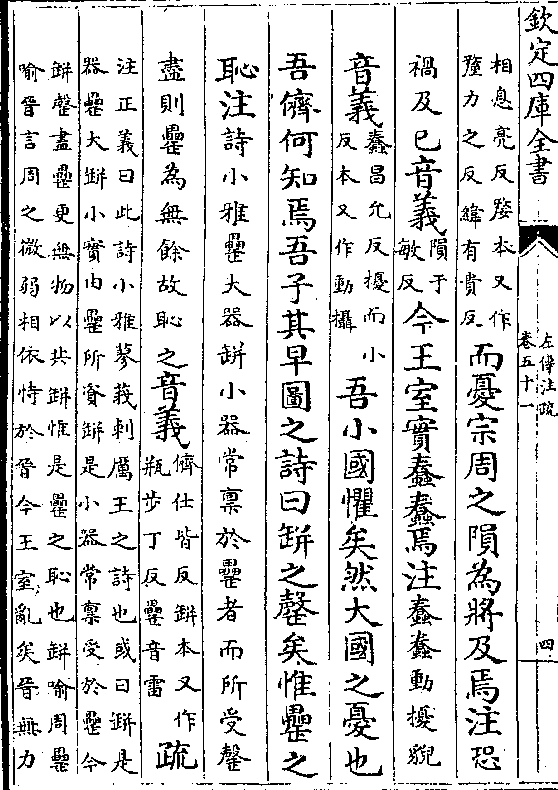 欽定四庫全書
左傳注疏
卷五十一
四
相息亮反嫠本又作
𨤲力之反緯有貴反
而憂宗周之隕為將及焉注恐
禍及已音義
隕于
敏反
今王室實蠢蠢焉注蠢蠢動擾貌
音義
蠢昌允反擾而小
反本又作動攝
吾小國懼矣然大國之憂也
吾儕何知焉吾子其早圖之詩曰缾之罄矣惟罍之
恥注詩小雅罍大器缾小器常禀於罍者而所受罄
盡則罍為無餘故恥之音義
儕仕皆反缾本又作
瓶步丁反罍音雷
疏
注正義曰此詩小雅蓼莪刺厲王之詩也或曰缾是
器罍大缾小實由罍所資缾是小器常禀受於罍今
缾罄盡罍更無物以共缾惟是罍之恥也缾喻周罍
喻晉言周之微弱相依恃於晉今王室亂矣晉無力